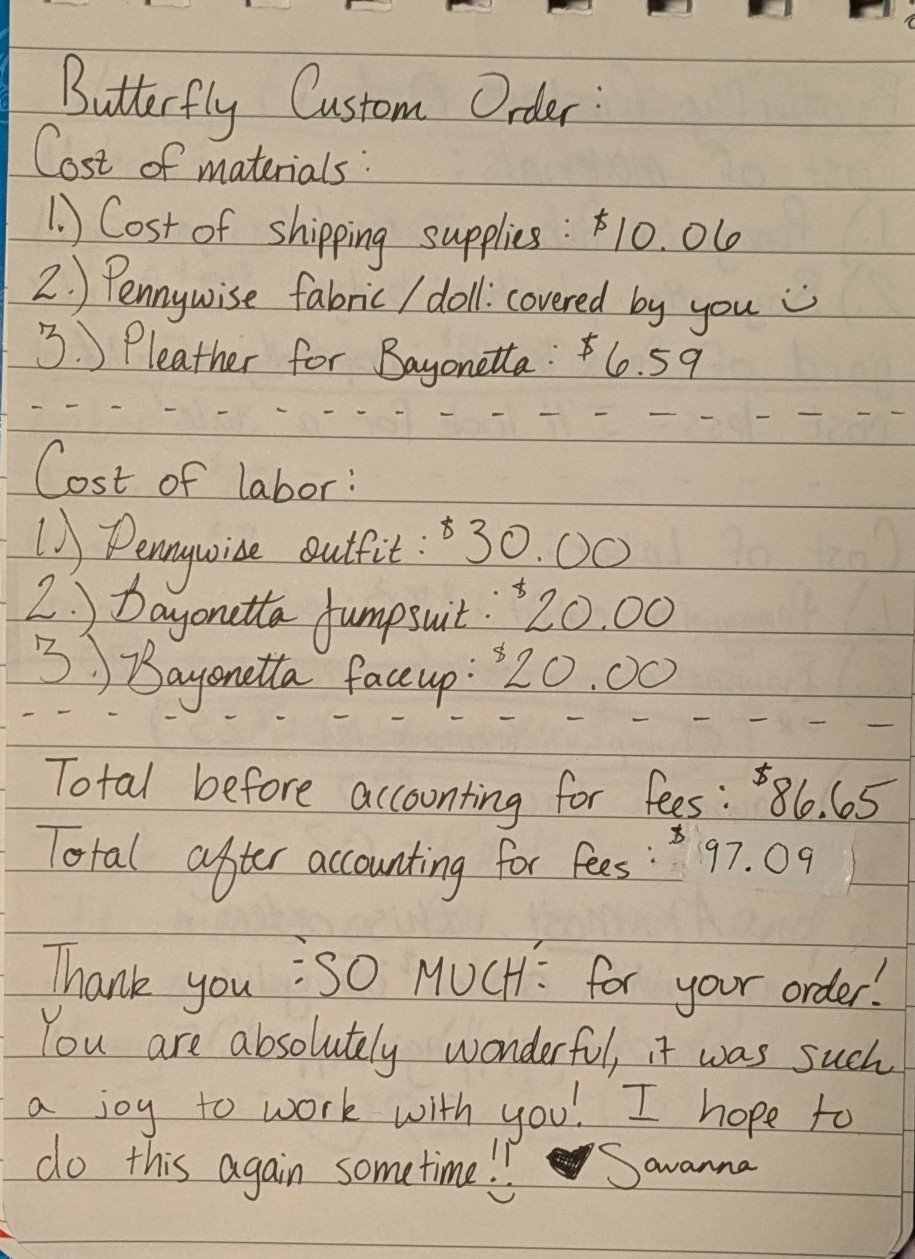 Butterfly Custom Order:
Cost of materials:
1.) Cost of shipping supplies: $10.06
2.) Pennywise fabric/doll: covered by you :)
3.) Pleather for Bayonetta: $6.59
- - - - - - - - - - - - - - - - -
Cost of labor:
1.) Pennywise outfit: $30.00
2.) Bayonetta Jumpsuit: $20.00
3.) Bayonetta faceup: $20.00
- - - - - - - - - - - - - - - -
Total before accounting for fees: $86.65
Total after accounting for fees: $97.09
Thank you SO MUCH for your order!
You are absolutely wonderful, it was such
a joy to work with you! I hope to
do this again sometime!! ♥ Savanna